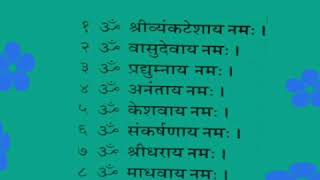 १ ॐ श्रीव्यंकटेशाय नमः ।
२ ॐ वासुदेवाय नमः ।
३ ॐ प्रद्युम्नाय नमः ।
४ ॐ अनंताय नमः ।
५ ॐ केशवाय नमः ।
६ ॐ संकर्षणाय नमः ।
७ ॐ श्रीधराय नमः ।
८ ॐ माधवाय नमः ।